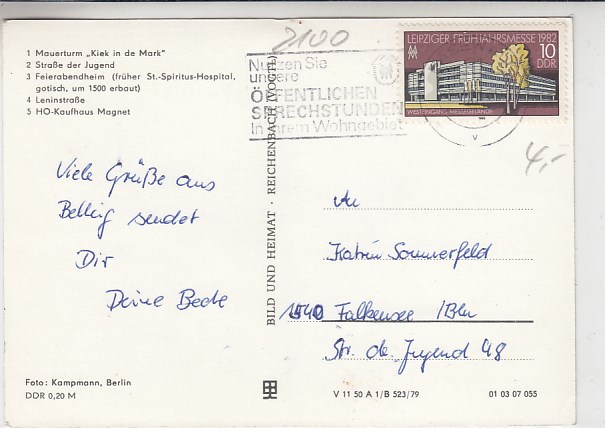 1 Mauerturm „Kiek in de Mark"
2 Straße der Jugend
3 Feierabendheim (früher St.-Spiritus-Hospital,
gotisch, um 1500 erbaut)
4 Leninstraße
5 HO-Kaufhaus Magnet
2100
Nutzen Sie
unsere
ÖFFENTLICHEN
SPRECHSTUNDEN
in Ihrem Wohngebiet
LEIPZIGER FRÜHJAHRSMESSE 1982
10
DDR
WESTEINGANG MESSEGELÄNDE
4,-
Viele Grüße aus
sendet
Dir
Deine
BILD UND HEIMAT · REICHENBACH (VOGTL)
An
Katrin Sommerfeld
1540 Falkensee /Bln
Str. de. Jugend 48
Foto: Kampmann, Berlin
DDR 0,20 M
V 11 50 A 1/B 523/79
01 03 07 055